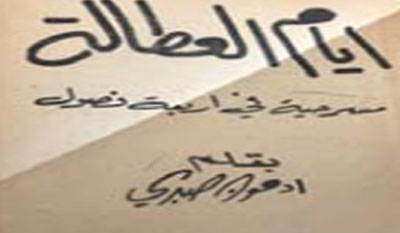 ايام العطالة
مسرحية في اربعة فصول
بقلم
ادمون صبري